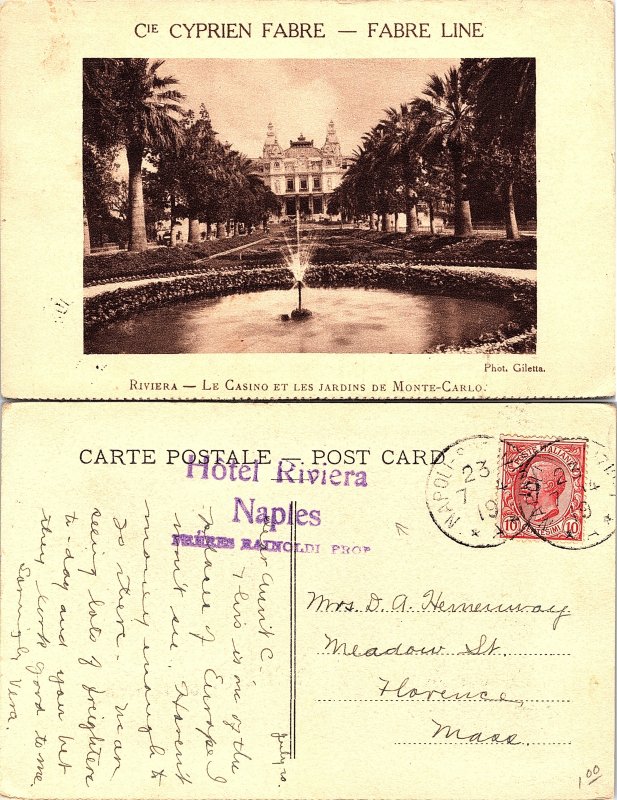 CIE CYPRIEN FABRE — FABRE LINE
Phot. Giletta.
RIVIERA — LE CASINO ET LES JARDINS DE MONTE-CARLO.
CARTE POSTALE — POST CARD
Hôtel Riviera
Naples
FRÈRES RAINOLDI PROP
NAPOLI
23
7
19
POSTE ITALIANE
10 CENTESIMI 10
July 20
Dear Aunt C.
This is one of the
places of Europe I
won't see. Haven't
money enough to
go there. Mean
seeing lots of freighters
to-day and you bet
they look good to me.
Lovingly Vera.
Mrs. D. A. Hemenway
Meadow St.
Florence,
Mass.
1.00